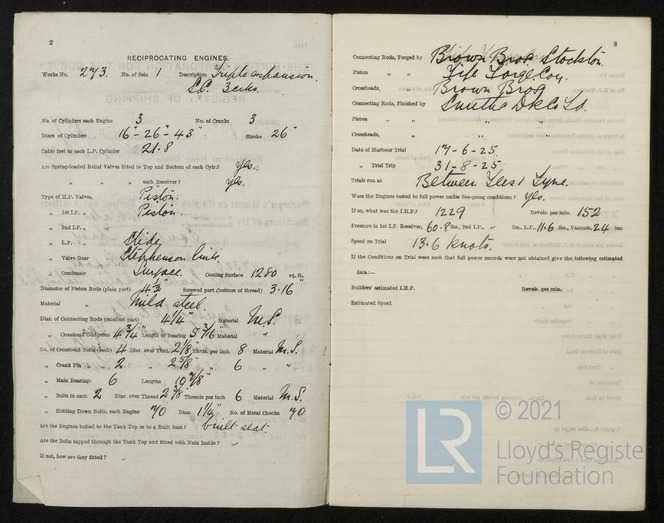 2
RECIPROCATING ENGINES.
Works No. 273. No. of Sets 1 Description Triple expansion.
S.C. 3 cranks.
No. of Cylinders each Engine 3 No. of Cranks 3
Diars of Cylinders 16"-26"-43" Stroke 26"
Cubic feet in each L.P. Cylinder 21.8
Are Spring-loaded Relief Valves fitted to Top and Bottom of each Cylr.? Yes.
" " each Receiver? Yes.
Type of H.P. Valves, Piston.
" 1st I.P. " Piston.
" 2nd I.P. "
" L.P. " Slide.
" Valve Gear Stephenson link.
" Condenser Surface. Cooling Surface 1280 sq. ft.
Diameter of Piston Rods (plain part) Screwed part (bottom of thread) 3.16"
Material Mild steel.
Diar. of Connecting Rods (smallest part) 4 1/4" Material M.S.
" Crosshead Gudgeons 4 3/4" Length of Bearing 5 3/16" Material "
No. of Crosshead Bolts (each) 4 Diar. over Thrd. 2 1/8 Thrds. per inch 8 Material M.S.
" Crank Pin " 2 " 2 5/8" " 6 " "
" Main Bearings 6 Lengths 10 7/8"
" Bolts in each 2 Diar. over Thread 2 7/8 Threads per inch 6 Material M.S.
" Holding Down Bolts, each Engine 70 Diar. 1 1/4" No. of Metal Chocks 70
Are the Engines bolted to the Tank Top or to a Built Seat? built seat.
Are the Bolts tapped through the Tank Top and fitted with Nuts Inside?
If not, how are they fitted?
3
Connecting Rods, Forged by Brown Bros. Stockton.
Piston " " Fife Forge Coy.
Crossheads, " Brown Bros.
Connecting Rods, Finished by Smiths Dk Co Ld.
Piston " "
Crossheads, " "
Date of Harbour Trial 17-6-25.
" Trial Trip 31-8-25.
Trials run at Between Tees & Tyne.
Were the Engines tested to full power under Sea-going conditions? Yes.
If so, what was the I.H.P.? 1229 Revols. per min. 152
Pressure in 1st I.P. Receiver, 60.8 lbs., 2nd I.P. " lbs., L.P., 11.6 lbs., Vacuum, 24 ins.
Speed on Trial 13.6 knots.
If the Conditions on Trial were such that full power records were not obtained give the following estimated
data:—
Builders' estimated I.H.P. Revols. per min.
Estimated Speed
© 2021
LR Lloyd's Register
Foundation